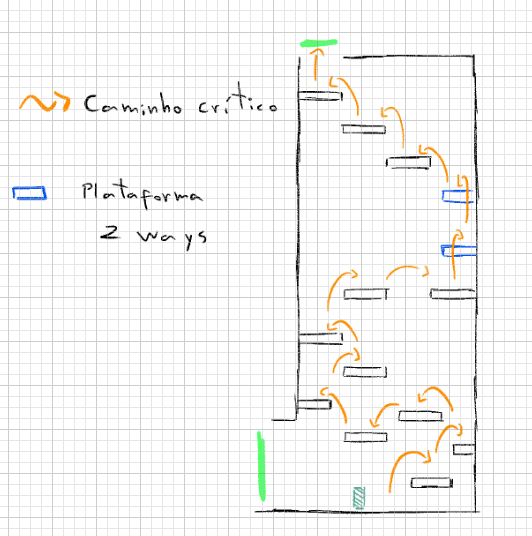 Caminho crítico
Plataforma
2 ways